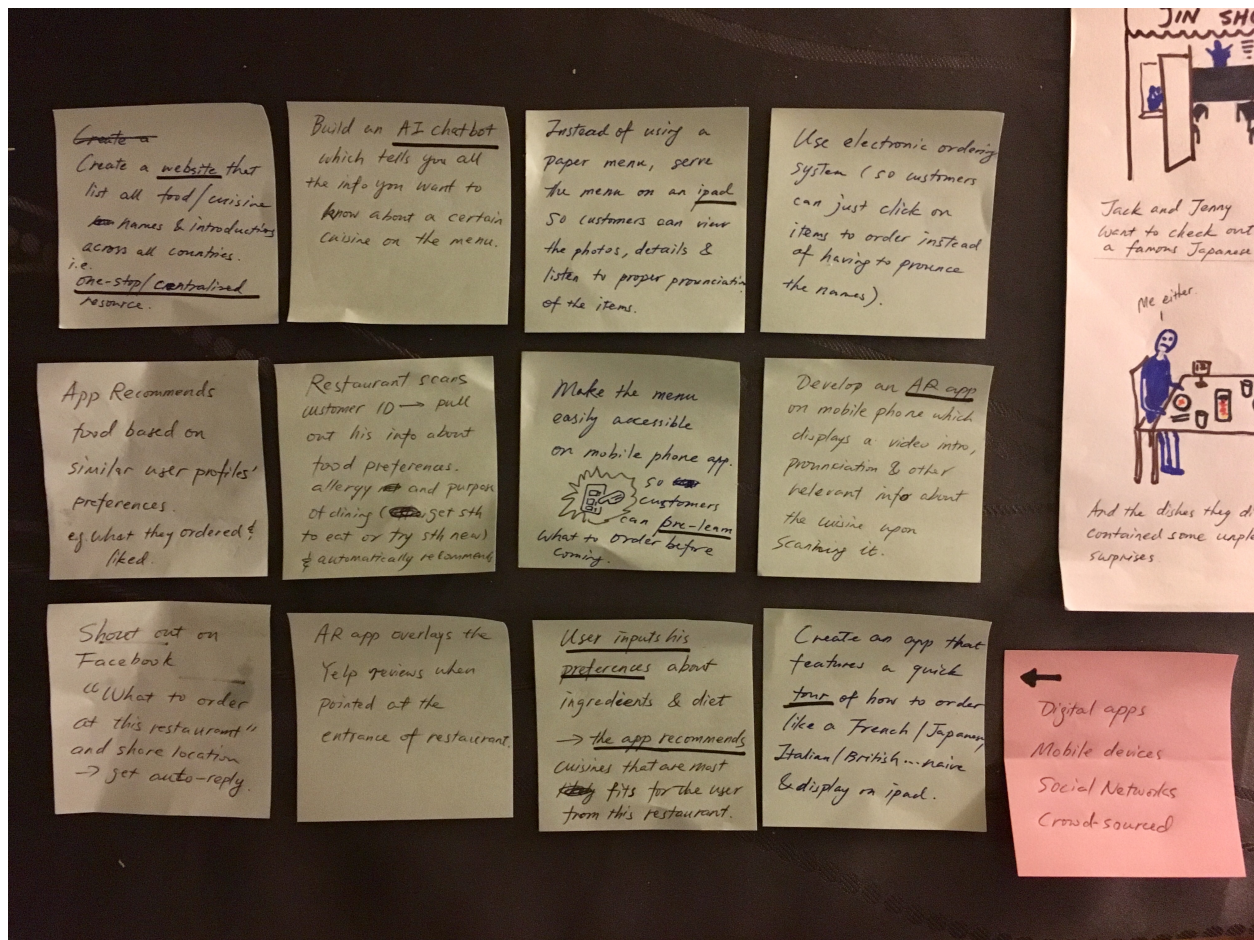 Create a
Create a website that
list all food/cuisine
names & introductions
across all countries.
i.e.
one-stop/centralized
resource.
Build an AI chatbot
which tells you all
the info you want to
know about a certain
cuisine on the menu.
Instead of using a
paper menu, serve
the menu on an ipad
so customers can view
the photos, details &
listen to proper pronunciation
of the items.
Use electronic ordering
system (so customers
can just click on
items to order instead
of having to prounce
the names).
App Recommends
food based on
similar user profiles'
preferences.
eg. what they ordered &
liked.
Restaurant scans
customer ID → pull
out his info about
food preferences.
allergy and purpose
of dining (get sth
to eat or try sth new)
& automatically recommends
Make the menu
easily accessible
on mobile phone app.
so
customers
can pre-learn
what to order before
coming.
Develop an AR app
on mobile phone which
displays a video intro,
prounciation & other
relevant info about
the cuisine upon
scanning it.
Shout out on
Facebook
"What to order
at this restaurant"
and share location
→ get auto-reply.
AR app overlays the
Yelp reviews when
pointed at the
entrance of restaurant.
User inputs his
preferences about
ingredients & diet
→ the app recommends
cuisines that are most
fits for the user
from this restaurant.
Create an app that
features a quick
tour of how to order
like a French/Japanese/
Italian/British... naive
& display on ipad.
←
Digital apps
Mobile devices
Social Networks
Crowd-sourced
JIN SH
Jack and Jenny
want to check out
a famous Japanese
Me either.
And the dishes they
contained some
surprises